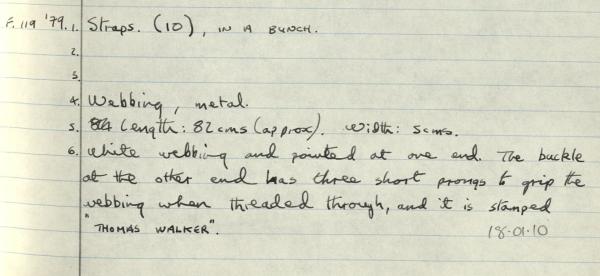 F.119 '79. 1. Straps. (10), IN A BUNCH.
2.
3.
4. Webbing, metal.
5. Length: 82 cms (approx). Width: 5cms.
6. White webbing and pointed at one end. The buckle
at the other end has three short prongs to grip the
webbing when threaded through, and it is stamped
"THOMAS WALKER". 18.01.10